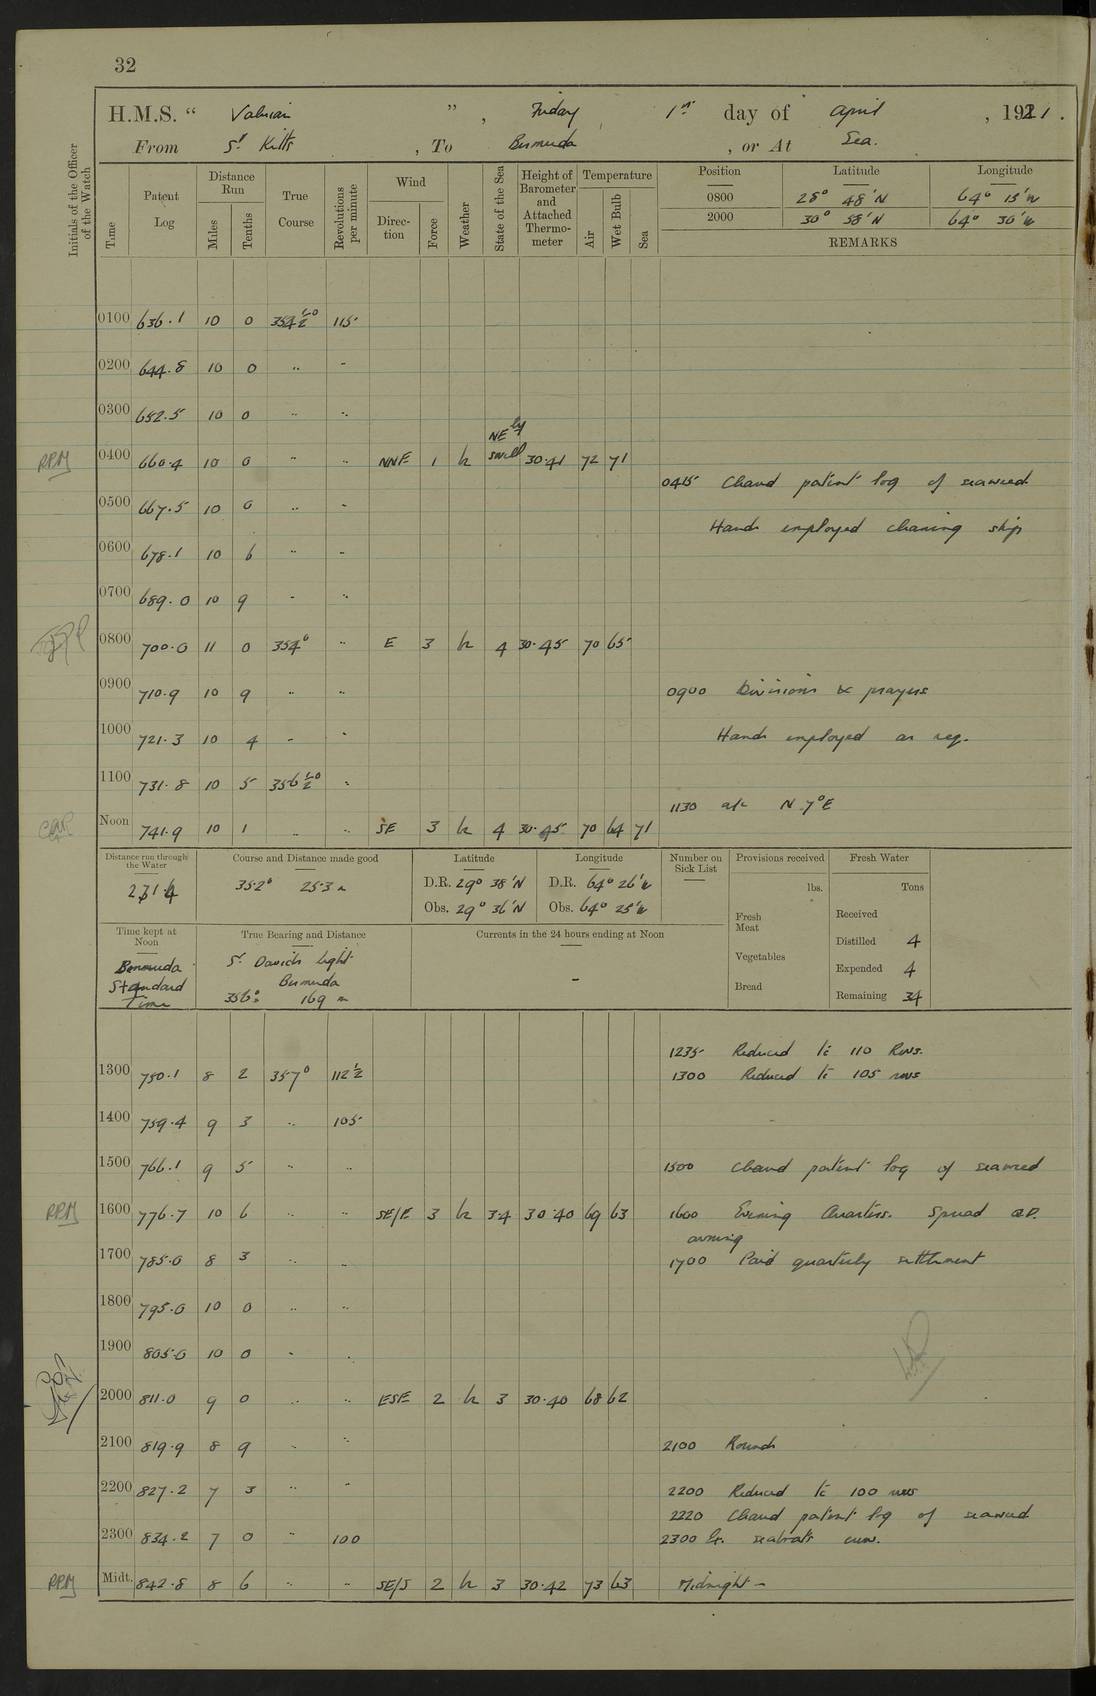 32
H.M.S. “ Valerian ” , Friday 1st day of April , 1921.
From St Kitts , To Bermuda , or At Sea.
Initials of the Officer of the Watch
Time Patent Log Distance Run Miles Tenths True Course Revolutions per minute Wind Direction Force Weather State of the Sea Height of Barometer and Attached Thermometer Temperature Air Wet Bulb Sea
Position Latitude Longitude
0800 28° 48'N 64° 15'W
2000 30° 58'N 64° 36'W
REMARKS
0100 636.1 10 0 354½° 115
0200 644.8 10 0 " "
0300 652.5 10 0 " "
RPM 0400 660.4 10 0 " " NNE 1 b NEly swell 30.41 72 71
0415 Cleared patent log of seaweed
0500 667.5 10 0 " "
Hands employed cleaning ship
0600 678.1 10 6 " "
0700 689.0 10 9 " "
0800 700.0 11 0 354° " E 3 b 4 30.45 70 65
0900 710.9 10 9 " " 0900 Divisions & prayers
1000 721.3 10 4 " " Hands employed as req.
1100 731.8 10 5 356½° "
1130 a/c N 7°E
Noon 741.9 10 1 " " SE 3 b 4 30.45 70 64 71
Distance run through the Water
231.4
Course and Distance made good
352° 253 m
Latitude
D.R. 29° 38'N
Obs. 29° 36'N
Longitude
D.R. 64° 26'W
Obs. 64° 25'W
Number on Sick List
Provisions received
lbs.
Fresh Meat
Vegetables
Bread
Fresh Water
Tons
Received
Distilled 4
Expended 4
Remaining 34
Time kept at Noon
Bermuda Standard Time
True Bearing and Distance
St Davids light
Bermuda
356° 169 m
Currents in the 24 hours ending at Noon
-
1235 Reduced to 110 Revs.
1300 750.1 8 2 357° 112½ 1300 Reduced to 105 revs
1400 759.4 9 3 " 105
1500 766.1 9 5 " " 1500 Cleared patent log of seaweed
RPM 1600 776.7 10 6 " " SE/E 3 b 3.4 30.40 69 63 1600 Evening Quarters. Spread QD.
awning
1700 785.0 8 3 " " 1700 Paid quarterly settlement
1800 795.0 10 0 " "
1900 805.0 10 0 " "
2000 811.0 9 0 " " ESE 2 b 3 30.40 68 62
2100 819.9 8 9 " " 2100 Rounds
2200 827.2 7 3 " " 2200 Reduced to 100 revs
2220 Cleared patent log of seaweed
2300 834.2 7 0 " 100 2300 seaboats crew.
RPM Midt. 842.8 8 6 " " SE/S 2 b 3 30.42 73 63 Midnight -